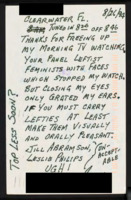 8/26/93
CLEARWATER FL.
TUNED IN 8:45 OFF 8:46
THANKS FOR FREEING UP
MY MORNING TV WATCHING.
YOUR PANEL LEFTIST
FEMINISTS WITH FACES
WHICH STOPPED MY WATCH.
BUT CLOSING MY EYES
ONLY GRATED MY EARS.
IF YOU MUST CARRY
LEFTIES AT LEAST
MAKE THEM VISUALLY
AND ORALLY PLEASANT.
JILL ABRAMSON,
LESLIE PHILIPS
UGH!
TOPLESS SOON?